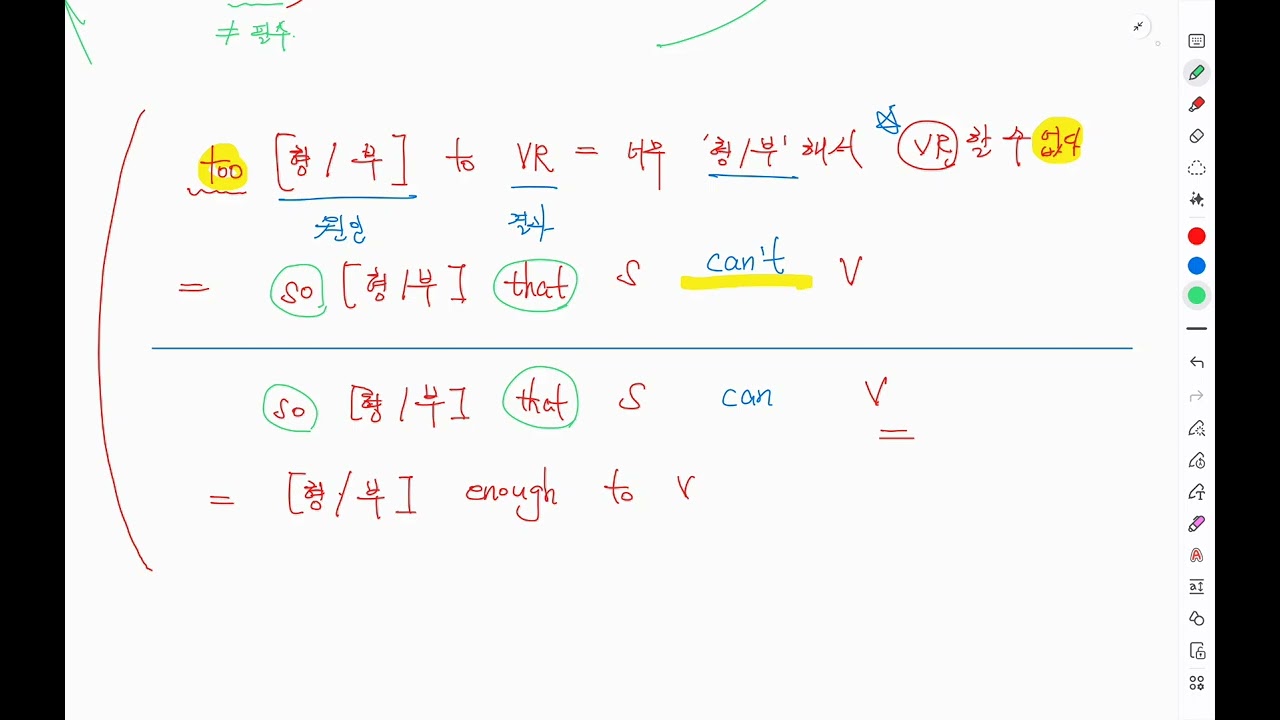 ≠ 필수.
too [형/부] to VR = 너무 '형/부' 해서 ☆ VR 할 수 없다
원인 결과
= so [형/부] that S can't V
so [형/부] that S can V
= [형/부] enough to V